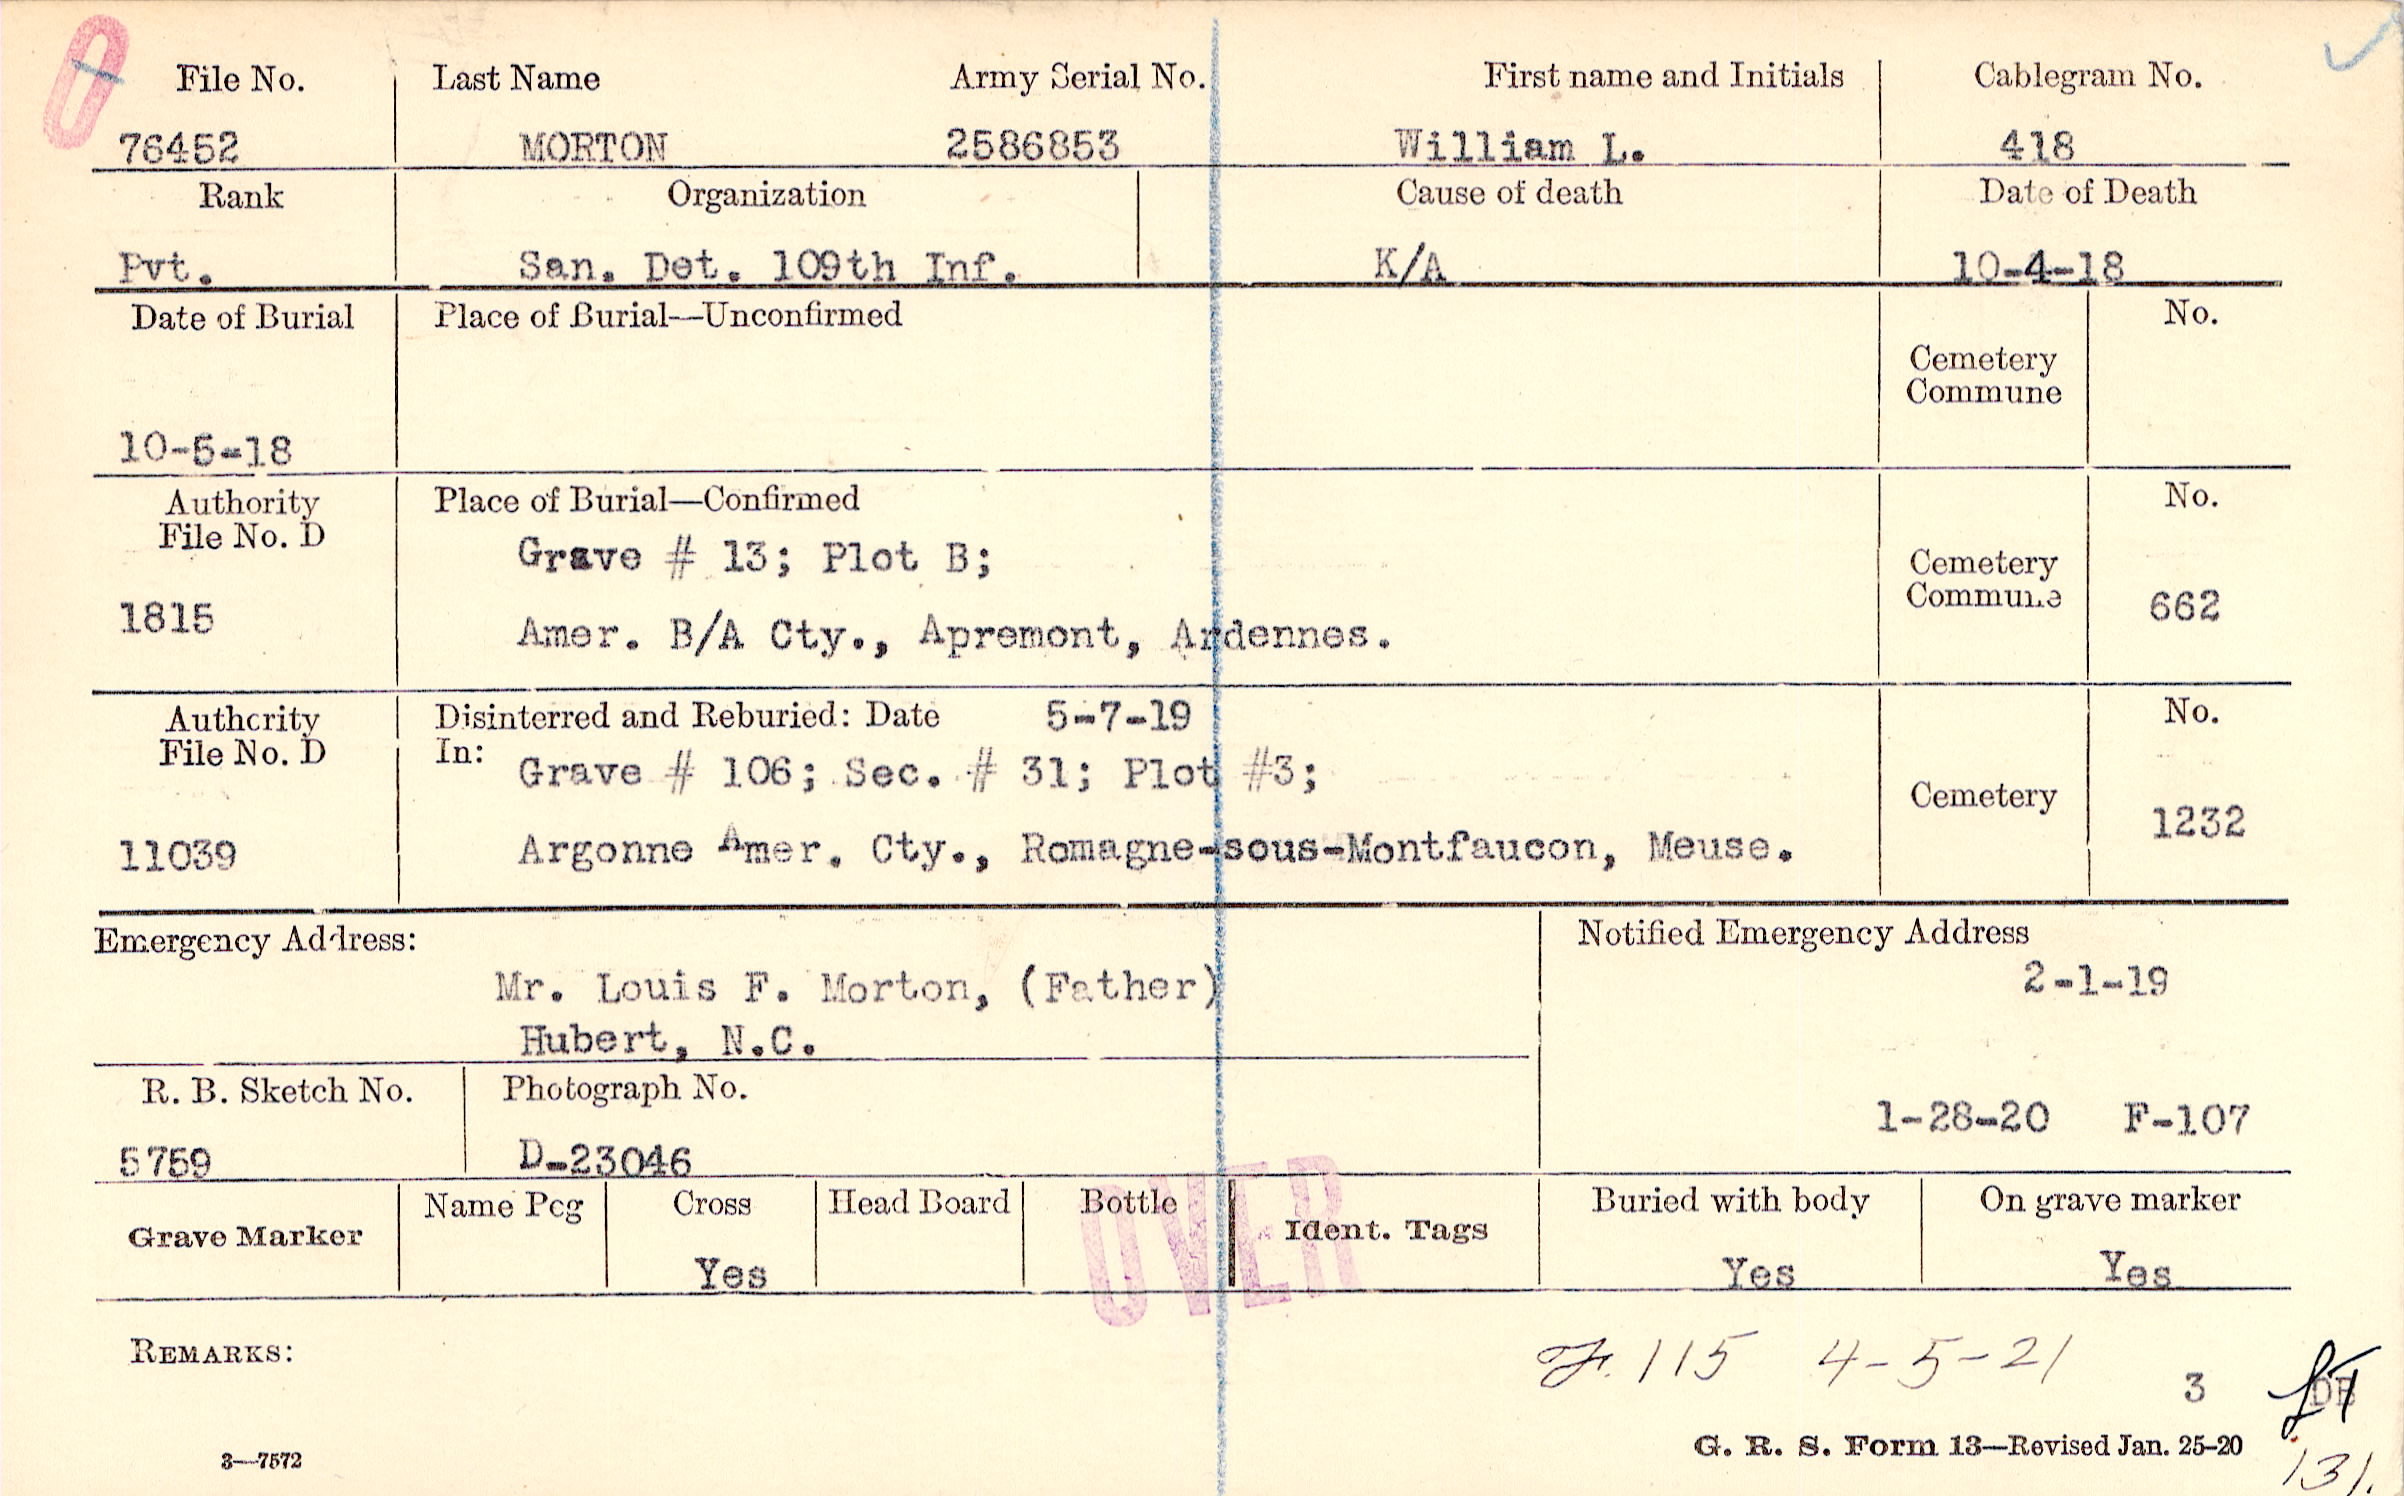 File No. Last Name Army Serial No. First name and Initials Cablegram No.
76452 MORTON 2586853 William L. 418
Rank Organization Cause of death Date of Death
Pvt. San. Det. 109th Inf. K/A 10-4-18
Date of Burial Place of Burial—Unconfirmed No.
Cemetery
Commune
10-5-18
Authority Place of Burial—Confirmed No.
File No. D
Grave # 13; Plot B;
Cemetery
Commune
1815 662
Amer. B/A Cty., Apremont, Ardennes.
Authority Disinterred and Reburied: Date 5-7-19 No.
File No. D In:
Grave # 106; Sec. # 31; Plot #3;
Cemetery
1232
11039 Argonne Amer. Cty., Romagne-sous-Montfaucon, Meuse.
Emergency Address: Notified Emergency Address
Mr. Louis F. Morton, (Father) 2-1-19
Hubert, N.C.
R. B. Sketch No. Photograph No.
1-28-20 F-107
5759 D-23046
Name Peg Cross Head Board Bottle Buried with body On grave marker
Grave Marker Ident. Tags
Yes Yes Yes
OVER
REMARKS:
F. 115 4-5-21
3 DB
G. R. S. Form 13—Revised Jan. 25-20
3—7572
131.